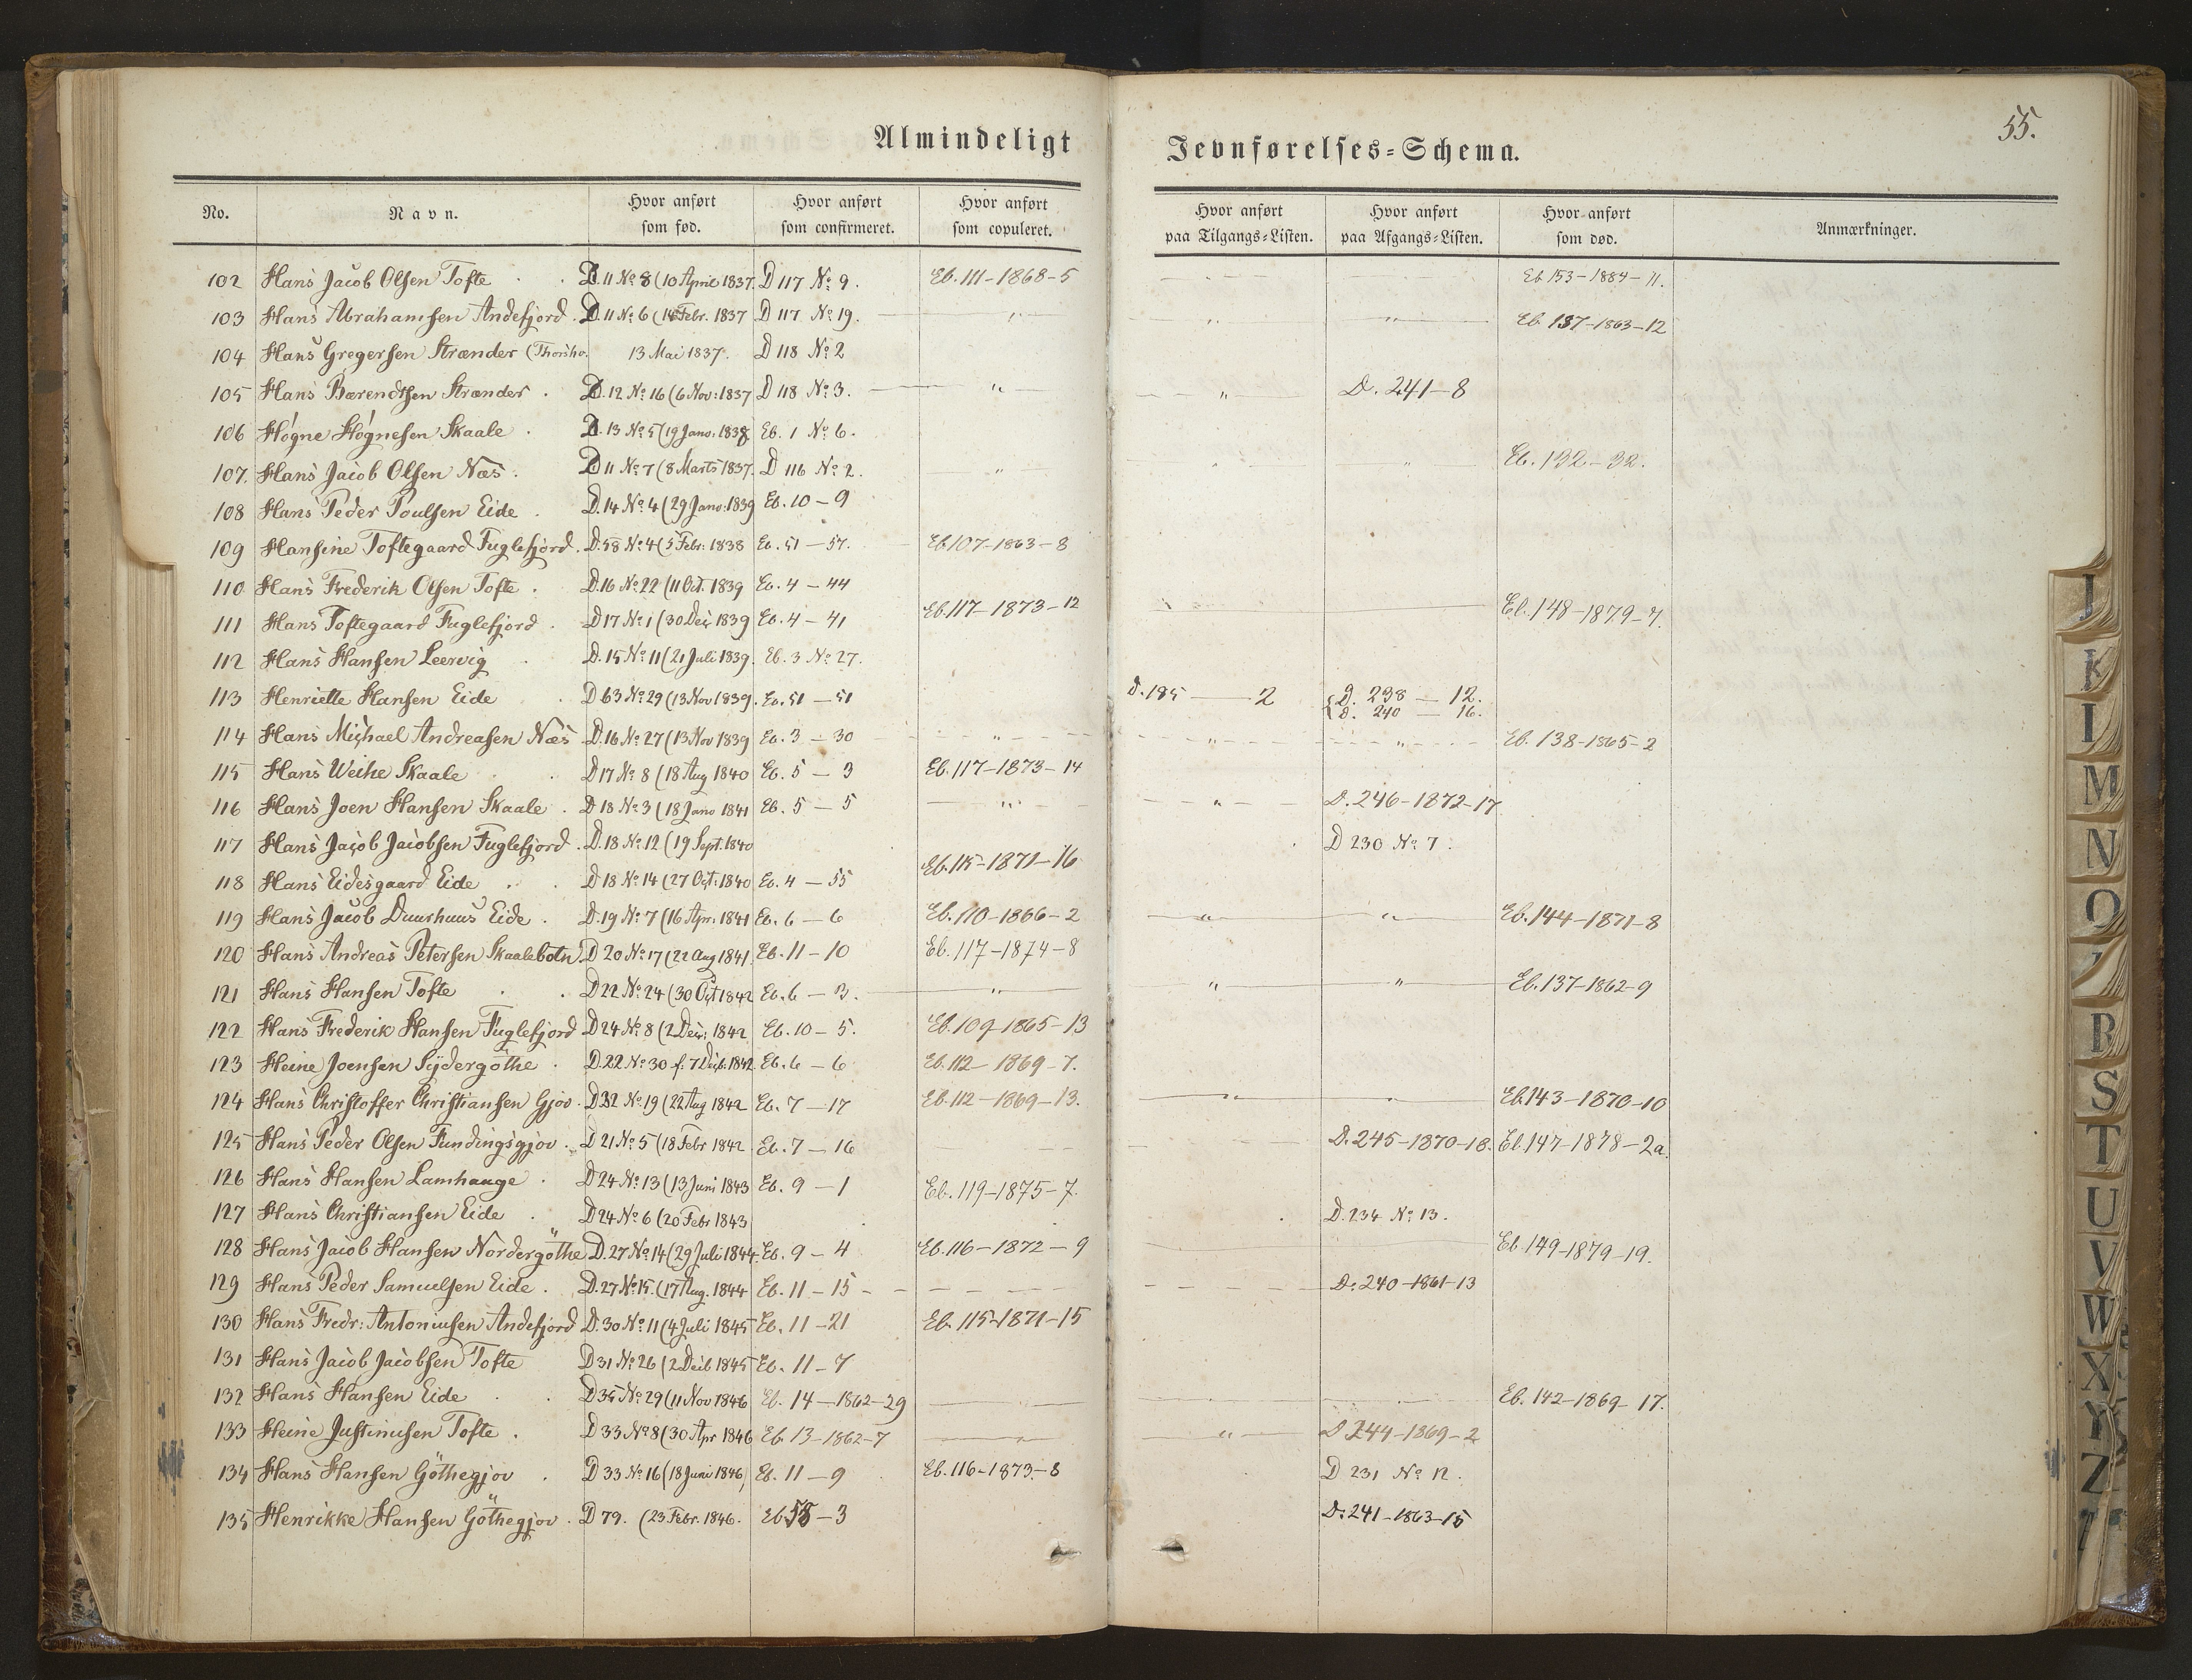 55.
Almindeligt Jevnførelses=Schema.
No. Navn. Hvor anført som fød. Hvor anført som confirmeret. Hvor anført som copuleret. Hvor anført paa Tilgangs=Listen. Hvor anført paa Afgangs=Listen. Hvor anført som død. Anmærkninger.
102 Hans Jacob Olsen Tofte D. 11 No 8 (10 April 1837. D 117 No 9. Eb. 111-1868-5 Eb 153-1884-11.
103 Hans Abrahamsen Andefjord D. 11 No 6 (14 Febr. 1837 D 117 No 19. " " " Eb. 137-1863-12
104 Hans Gregersen Strænder (Thorsh. 13 Mai 1837. D 118 No 2
105 Hans Bærendtsen Strænder D. 12 No 16 (6 Nov: 1837 D 118 No 3. " " D. 241-8
106 Høgne Høgnesen Skaale D. 13 No 5 (19 Janv: 1838 Eb. 1 No 6.
107. Hans Jacob Olsen Næs. D 11 No 7 (8 Marts 1837. D 116 No 2. " " " Eb. 132-32.
108 Hans Peder Poulsen Eide D. 14 No 4 (29 Janv: 1839 Eb. 10-9
109 Hansine Toftegaard Fuglefjord. D. 58 No 4 (5 Febr: 1838 Eb. 51-57. Eb 107-1863-8
110 Hans Frederik Olsen Tofte D. 16 No 22 (11 Oct. 1839 Eb. 4-44
111 Hans Toftegaard Fuglefjord D 17 No 1 (30 Dec. 1839 Eb. 4-41 Eb. 117-1873-12 Eb. 148-1879-7.
112 Hans Hansen Leervig D. 15 No 11 (21 Juli 1839. Eb. 3 No 27.
113 Henriette Hansen Eide D 63 No 29 (13 Nov 1839. Eb. 51-51 D. 185 — 2 { D. 238 — 12.
D. 240 — 16.
114 Hans Michael Andreasen Næs D. 16 No 27 (13 Nov 1839 Eb. 3-30 " " " Eb. 138-1865-2
115 Hans Weihe Skaale D 17 No 8 (18 Aug 1840 Eb. 5-3 Eb. 117-1873-14
116 Hans Joen Hansen Skaale D 18 No 3 (18 Janv 1841 Eb. 5-5 " " D. 246-1872-17
117 Hans Jacob Jacobsen Fuglefjord. D. 18 No 12 (19 Sept. 1840 D 230 No 7.
118 Hans Eidesgaard Eide D 18 No 14 (27 Oct: 1840 Eb. 4-55 Eb. 115-1871-16
119 Hans Jacob Duurhuus Eide D. 19 No 7 (16 Apr: 1841 Eb. 6-6 Eb. 110-1866-2 " " Eb. 144-1871-8
120 Hans Andreas Petersen Skaalebotn. D 20 No 17 (22 Aug 1841. Eb. 11-10 Eb. 117-1874-8
121 Hans Hansen Tofte D 22 No 24 (30 Oct 1842 Eb. 6-3. " " " Eb. 137-1862-9
122 Hans Frederik Hansen Fuglefjord D 24 No 8 (2 Dec: 1842 Eb. 10-5. Eb. 109-1865-13
123 Heine Joensen Sydergøthe D. 22 No 30 f. 7 Decb. 1842 Eb. 6-6 Eb. 112-1869-7.
124 Hans Christoffer Christiansen Gjov. D 22 No 19 (22 Aug 1842 Eb. 7-17 Eb. 112-1869-13. " " Eb. 143-1870-10
125 Hans Peder Olsen Fundingsgjov D 21 No 5 (18 Febr 1842 Eb. 7-16 D. 245-1870-18. Eb. 147-1878-2a.
126 Hans Hansen Lamhauge D 24 No 13 (13 Juni 1843 Eb. 9-1 Eb. 119-1875-7.
127 Hans Christiansen Eide D 24 No 6 (20 Febr 1843 D. 234 No 13.
128 Hans Jacob Hansen Nordergöthe D. 27 No 14 (29 Juli 1844. Eb. 9-4 Eb. 116-1872-9 Eb. 149-1879-19.
129 Hans Peder Samuelsen Eide D. 27 No 15. (17 Aug. 1844 Eb. 11-15 D. 240-1861-13
130 Hans Fredr: Antoniusen Andefjord D. 30 No 11 (4 Juli 1845 Eb. 11-21 Eb. 115-1871-15
131 Hans Jacob Jacobsen Tofte D 31 No 26 (2 Decb 1845 Eb. 11-7
132 Hans Hansen Eide D 35 No 29 (11 Nov 1846 Eb. 14-1862-29 Eb. 142-1869-17.
133 Heine Justinusen Tofte D 33 No 8 (30 Apr 1846 Eb. 13-1862-7 " " D 244-1869-2
134 Hans Hansen Göthegjov D 33 No 16 (18 Juni 1846, Eb. 11-9 Eb. 116-1873-8 D 231 No 12.
135 Henrikke Hansen Göthegjov D 79. (23 Febr. 1846. Eb 58-3 D. 241-1863-15
J
K
L
M
N
O
R
S
T
U
V
W
X
Y
Z